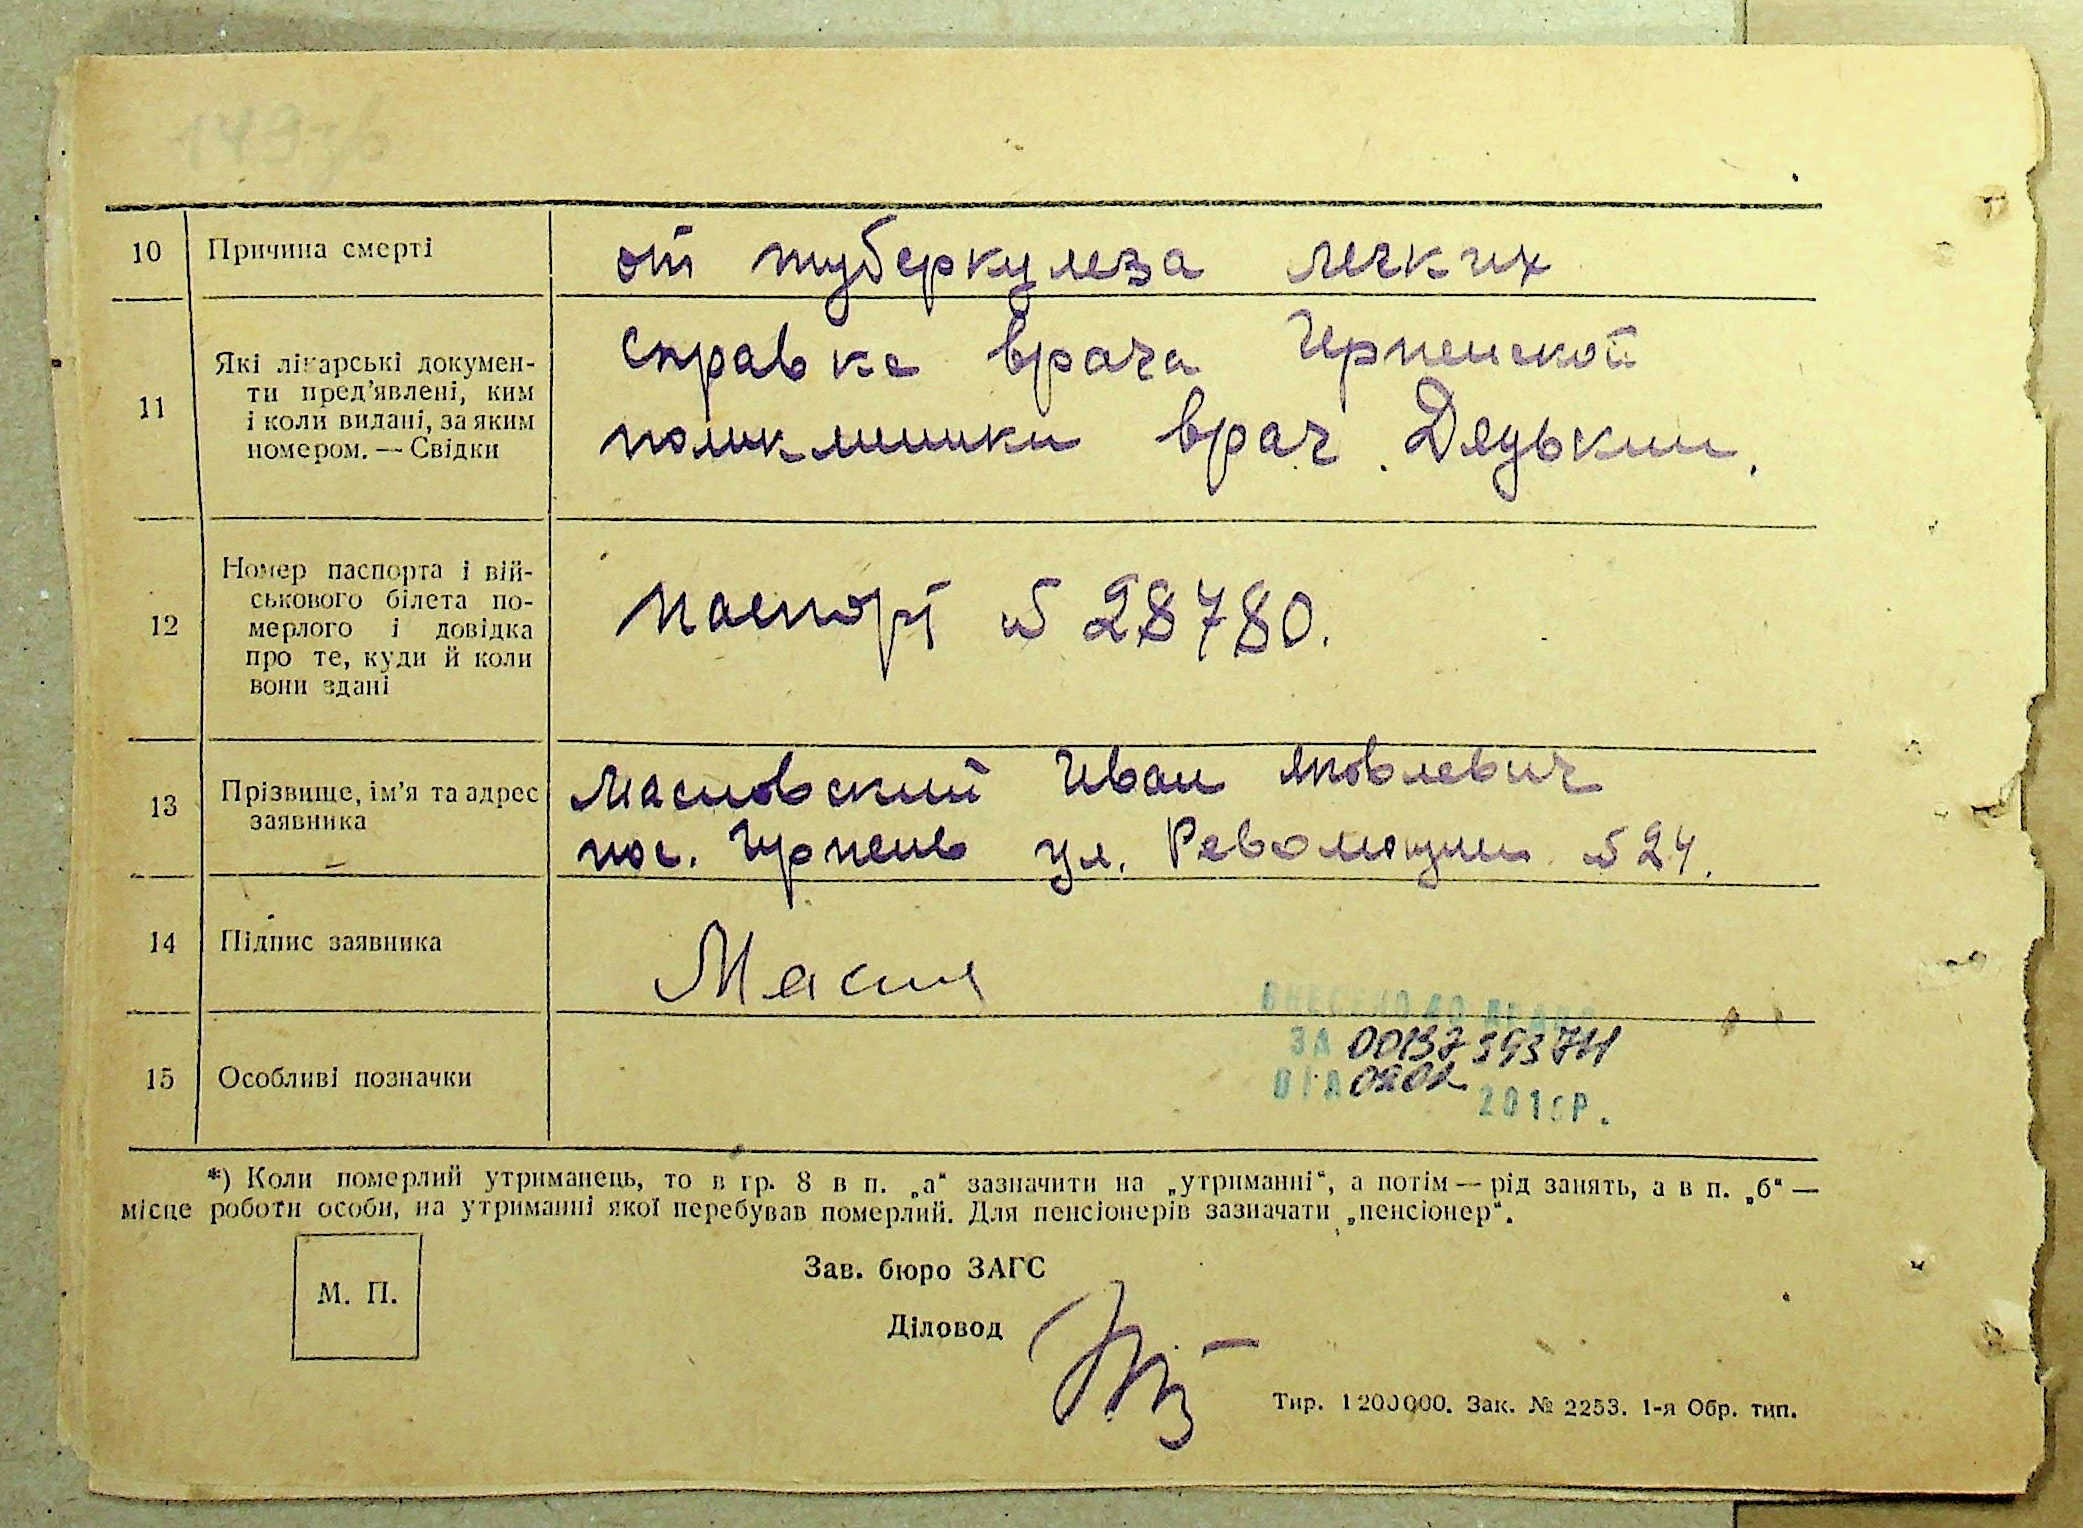 10 Причина смерті от туберкулеза легких
11 Які лікарські докумен-
ти пред'явлені, ким
і коли видані, за яким
номером. — Свідки
справка врача Ирпенской
поликлиники врач Дядькин.
12 Номер паспорта і вій-
ського білета по-
мерлого і довідка
про те, куди й коли
вони здані
паспорт № 28780.
13 Прізвище, ім'я та адрес
заявника
Масловский Иван Яковлевич
пос. Ирпень ул. Революции № 24.
14 Підпис заявника
15 Особливі позначки
ВНЕСЕНО ДО
ЗА 00137393711
ВІД 2016Р.
*) Коли померлий утриманець, то в гр. 8 в п. „а“ зазначити на „утриманні“, а потім — рід занять, а в п. „б“ —
місце роботи особи, на утриманні якої перебував померлий. Для пенсіонерів зазначати „пенсіонер“.
М. П.
Зав. бюро ЗАГС
Діловод
Тир. 1200000. Зак. № 2253. 1-я Обр. тип.